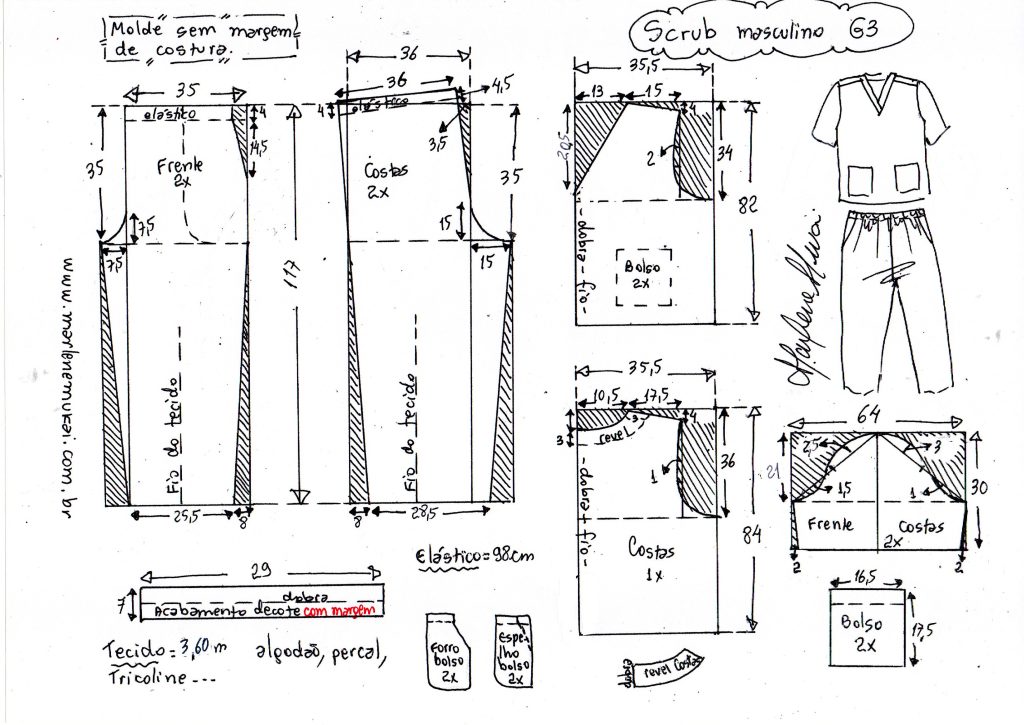 Molde sem margem
de costura.
Scrub masculino G3
35
elástico
4
14,5
Frente
2x
35
7,5
7,5
117
Fio do tecido
25,5
8
36
36
4,5
4
elástico
3,5
Costas
2x
35
15
15
Fio do tecido
8
28,5
35,5
13
15
4
20,5
2
34
82
dobra - fio
Bolso
2x
35,5
10,5
17,5
3
3
4
revel
1
36
84
dobra + fio
Costas
1x
Marlene Mukai
64
2,5
3
21
1,5
1
30
Frente
Costas
2x
2
2
16,5
Bolso
2x
17,5
www.marlenemukai.com.br
29
7
dobra
Acabamento decote com margem
Elástico = 98cm
Tecido = 3,60 m algodão, percal,
Tricoline ---
Forro
bolso
2x
Espe-
lho
bolso
2x
dobra
revel Costas